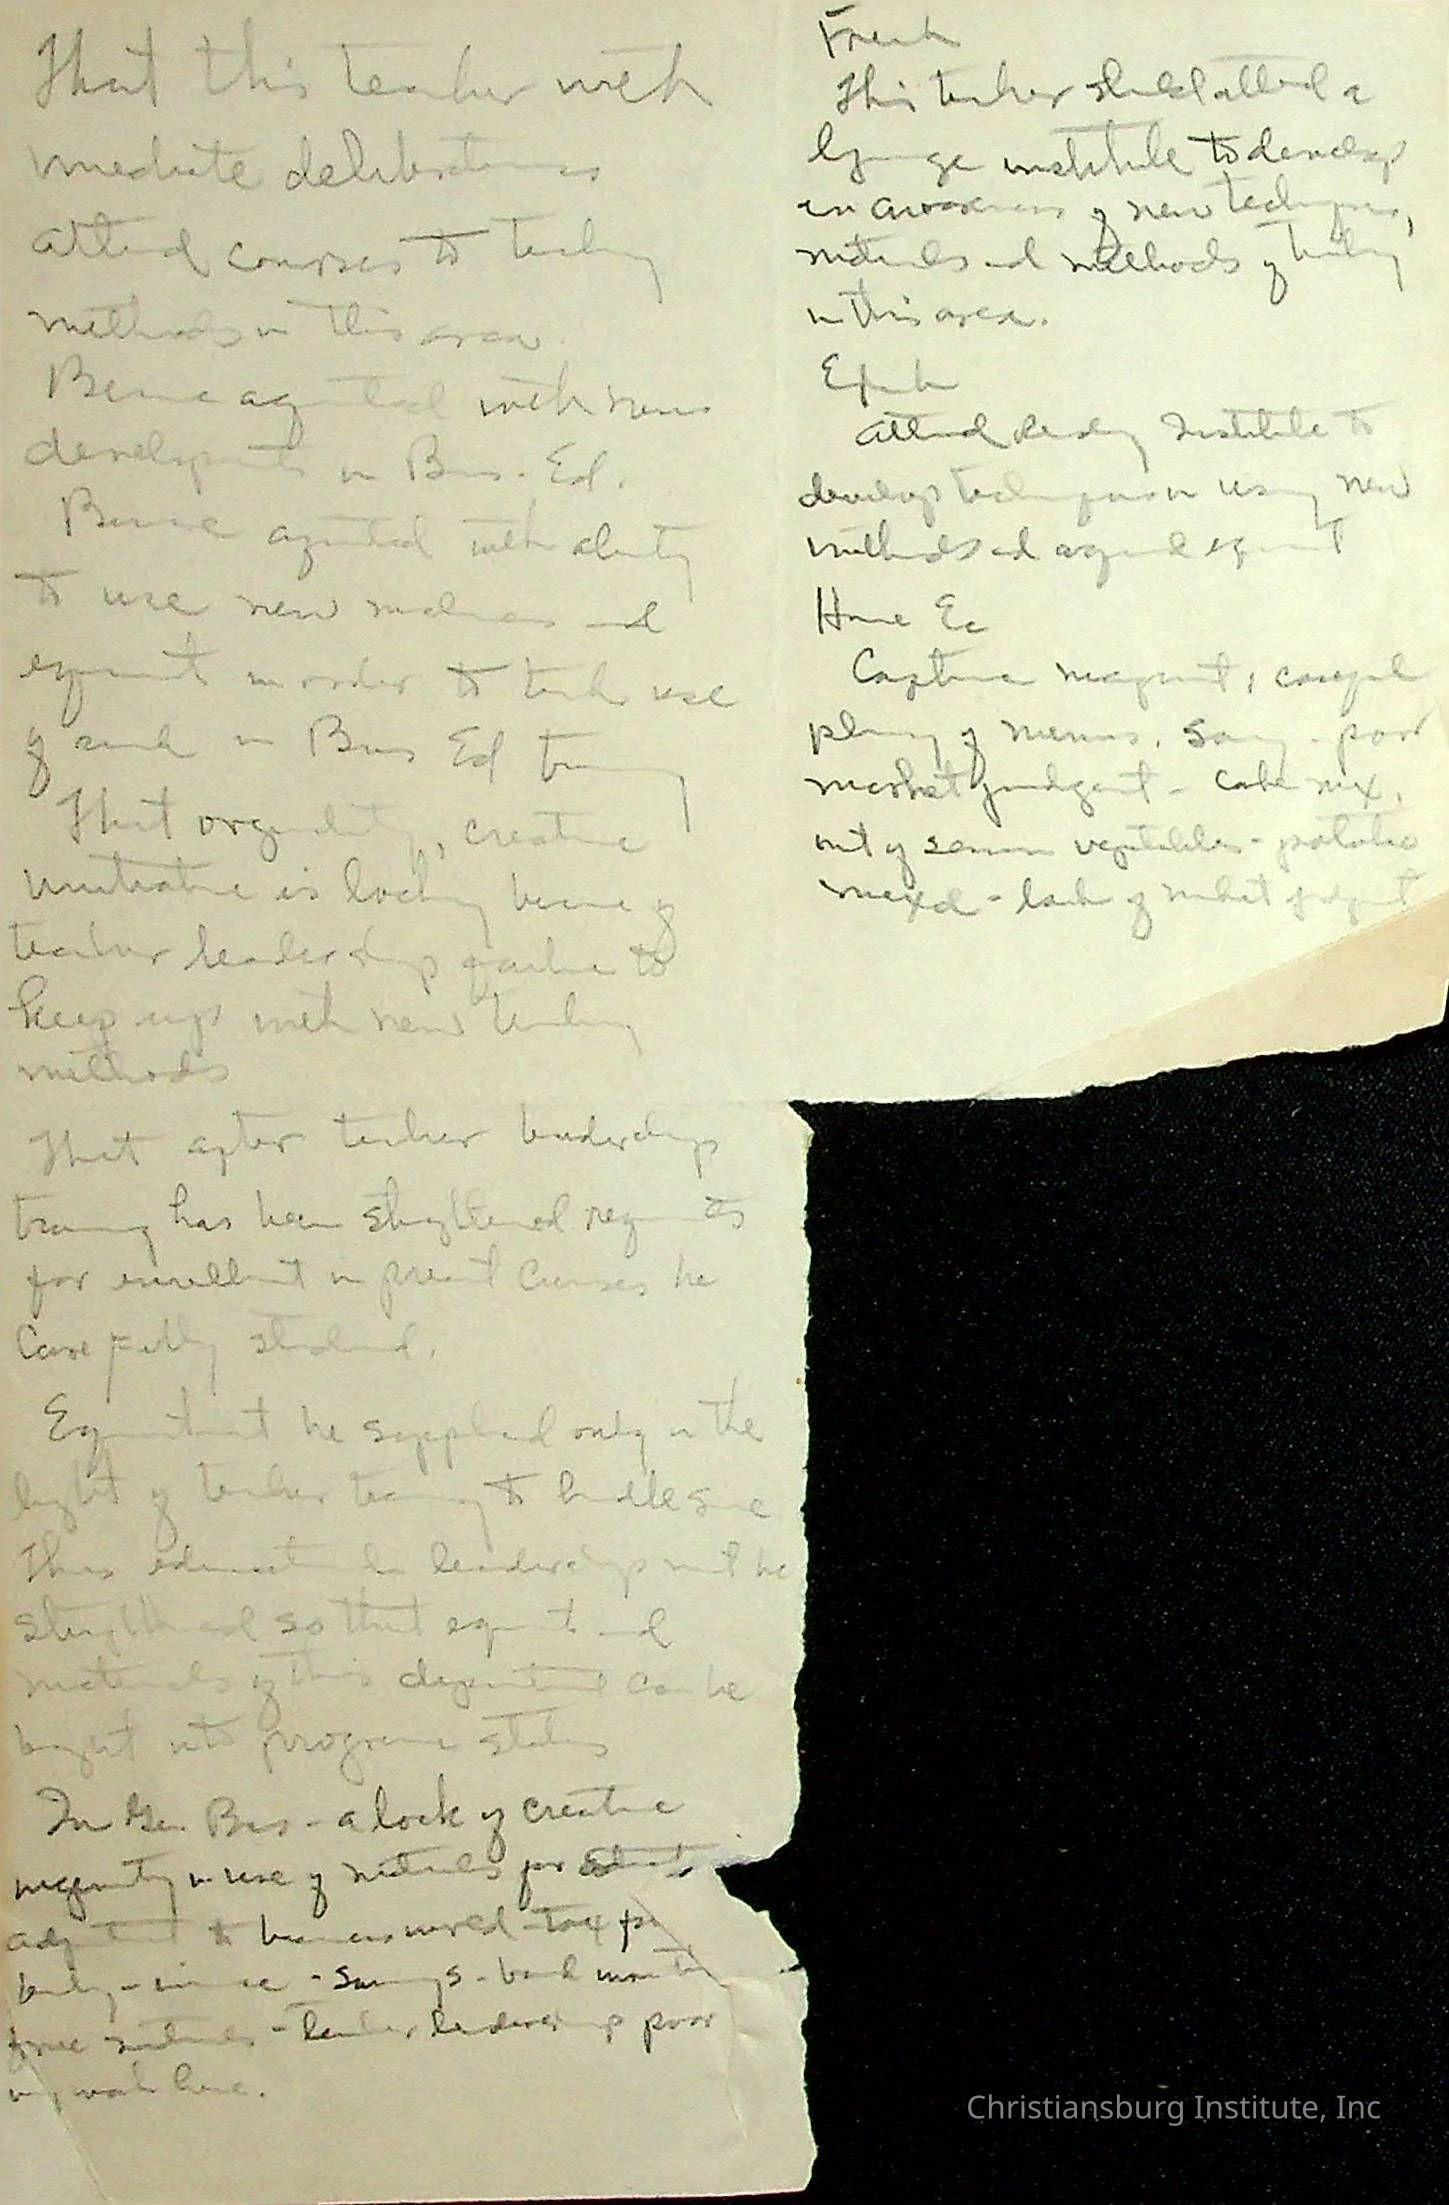 That this teacher with
mediate deliberations
attend courses to teaching
methods in this area.
Become acquainted with new
developments in Bus. Ed.
Become acquainted with ability
to use new machines and
equipment in order to teach use
of such in Bus Ed training
That originality, creative
initiative is lacking because of
teacher leadership failure to
keep up with new teaching
methods
That after teacher leadership
training has been strengthened requirements
for enrollment in present courses be
carefully studied.
Equipment be supplied only in the
light of teacher training to handle same
Thus educational leadership must be
strengthened so that equipment and
materials of this department can be
brought into programe
In Gen Bus - a lack of creative
ingenuity in use of materials for
adjustment to business world - tax
- savings - bank
free materials - teacher leadership poor
here.
French
This teacher should attend a
language institute to develop
an awareness of new techniques,
materials and methods of teaching
in this area.
English
Attend Reading Institute to
develop techniques in using new
methods and equipment
Home Ec
planning of menus.
market judgment - cake mix.
out of season vegetables - potatoes
mixed - lack of market judgment
Christiansburg Institute, Inc